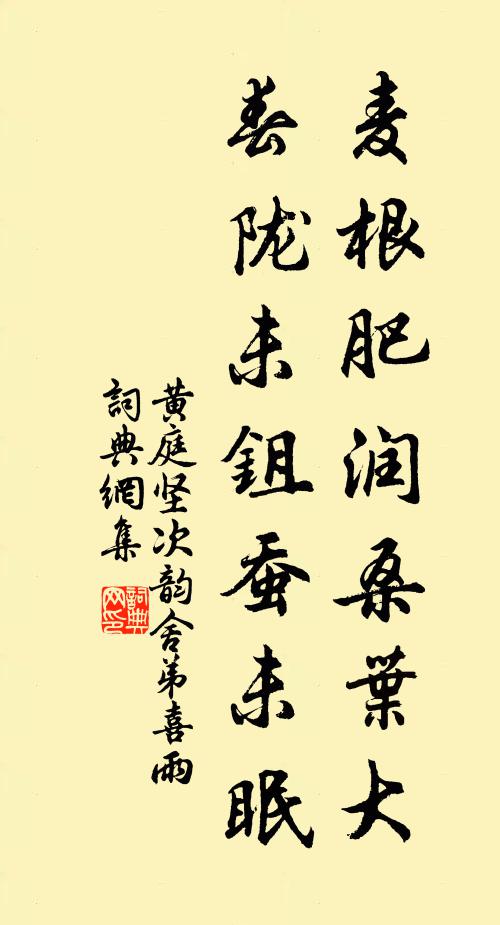 麦根肥润桑葉大
春陇未鉏蚕未眠
黄庭坚次韵舍弟喜雨
詞典網集
詞典网印